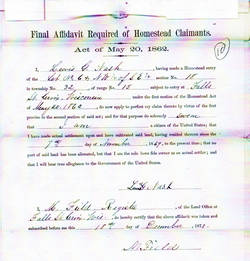 Final Affidavit Required of Homestead Claimants.
Act of May 20, 1862.
I, Lewis G. Nash, having made a Homestead entry
of the section No. 18
in township No. 32, of range No. 18 subject to entry at Falls
St. Croix, Wisconsin under the first section of the Homestead Act
of May 20, 1862 do now apply to perfect my claim thereto by virtue of the first
proviso to the second section of said act; and for that purpose do solemnly swear
that I am a citizen of the United States; that
I have made actual settlement upon and have cultivated said land, having resided thereon since
the day of November, 18 , to the present time; that no
part of said land has been alienated, but that I am the sole bona fide owner as an actual settler; and
that I will bear true allegiance to the Government of the United States.
Nash
I, M. Field, Register, of the Land Office at
Falls St. Croix, Wis. do hereby certify that the above affidavit was taken and
subscribed before me this 18th day of December 18
M. Field